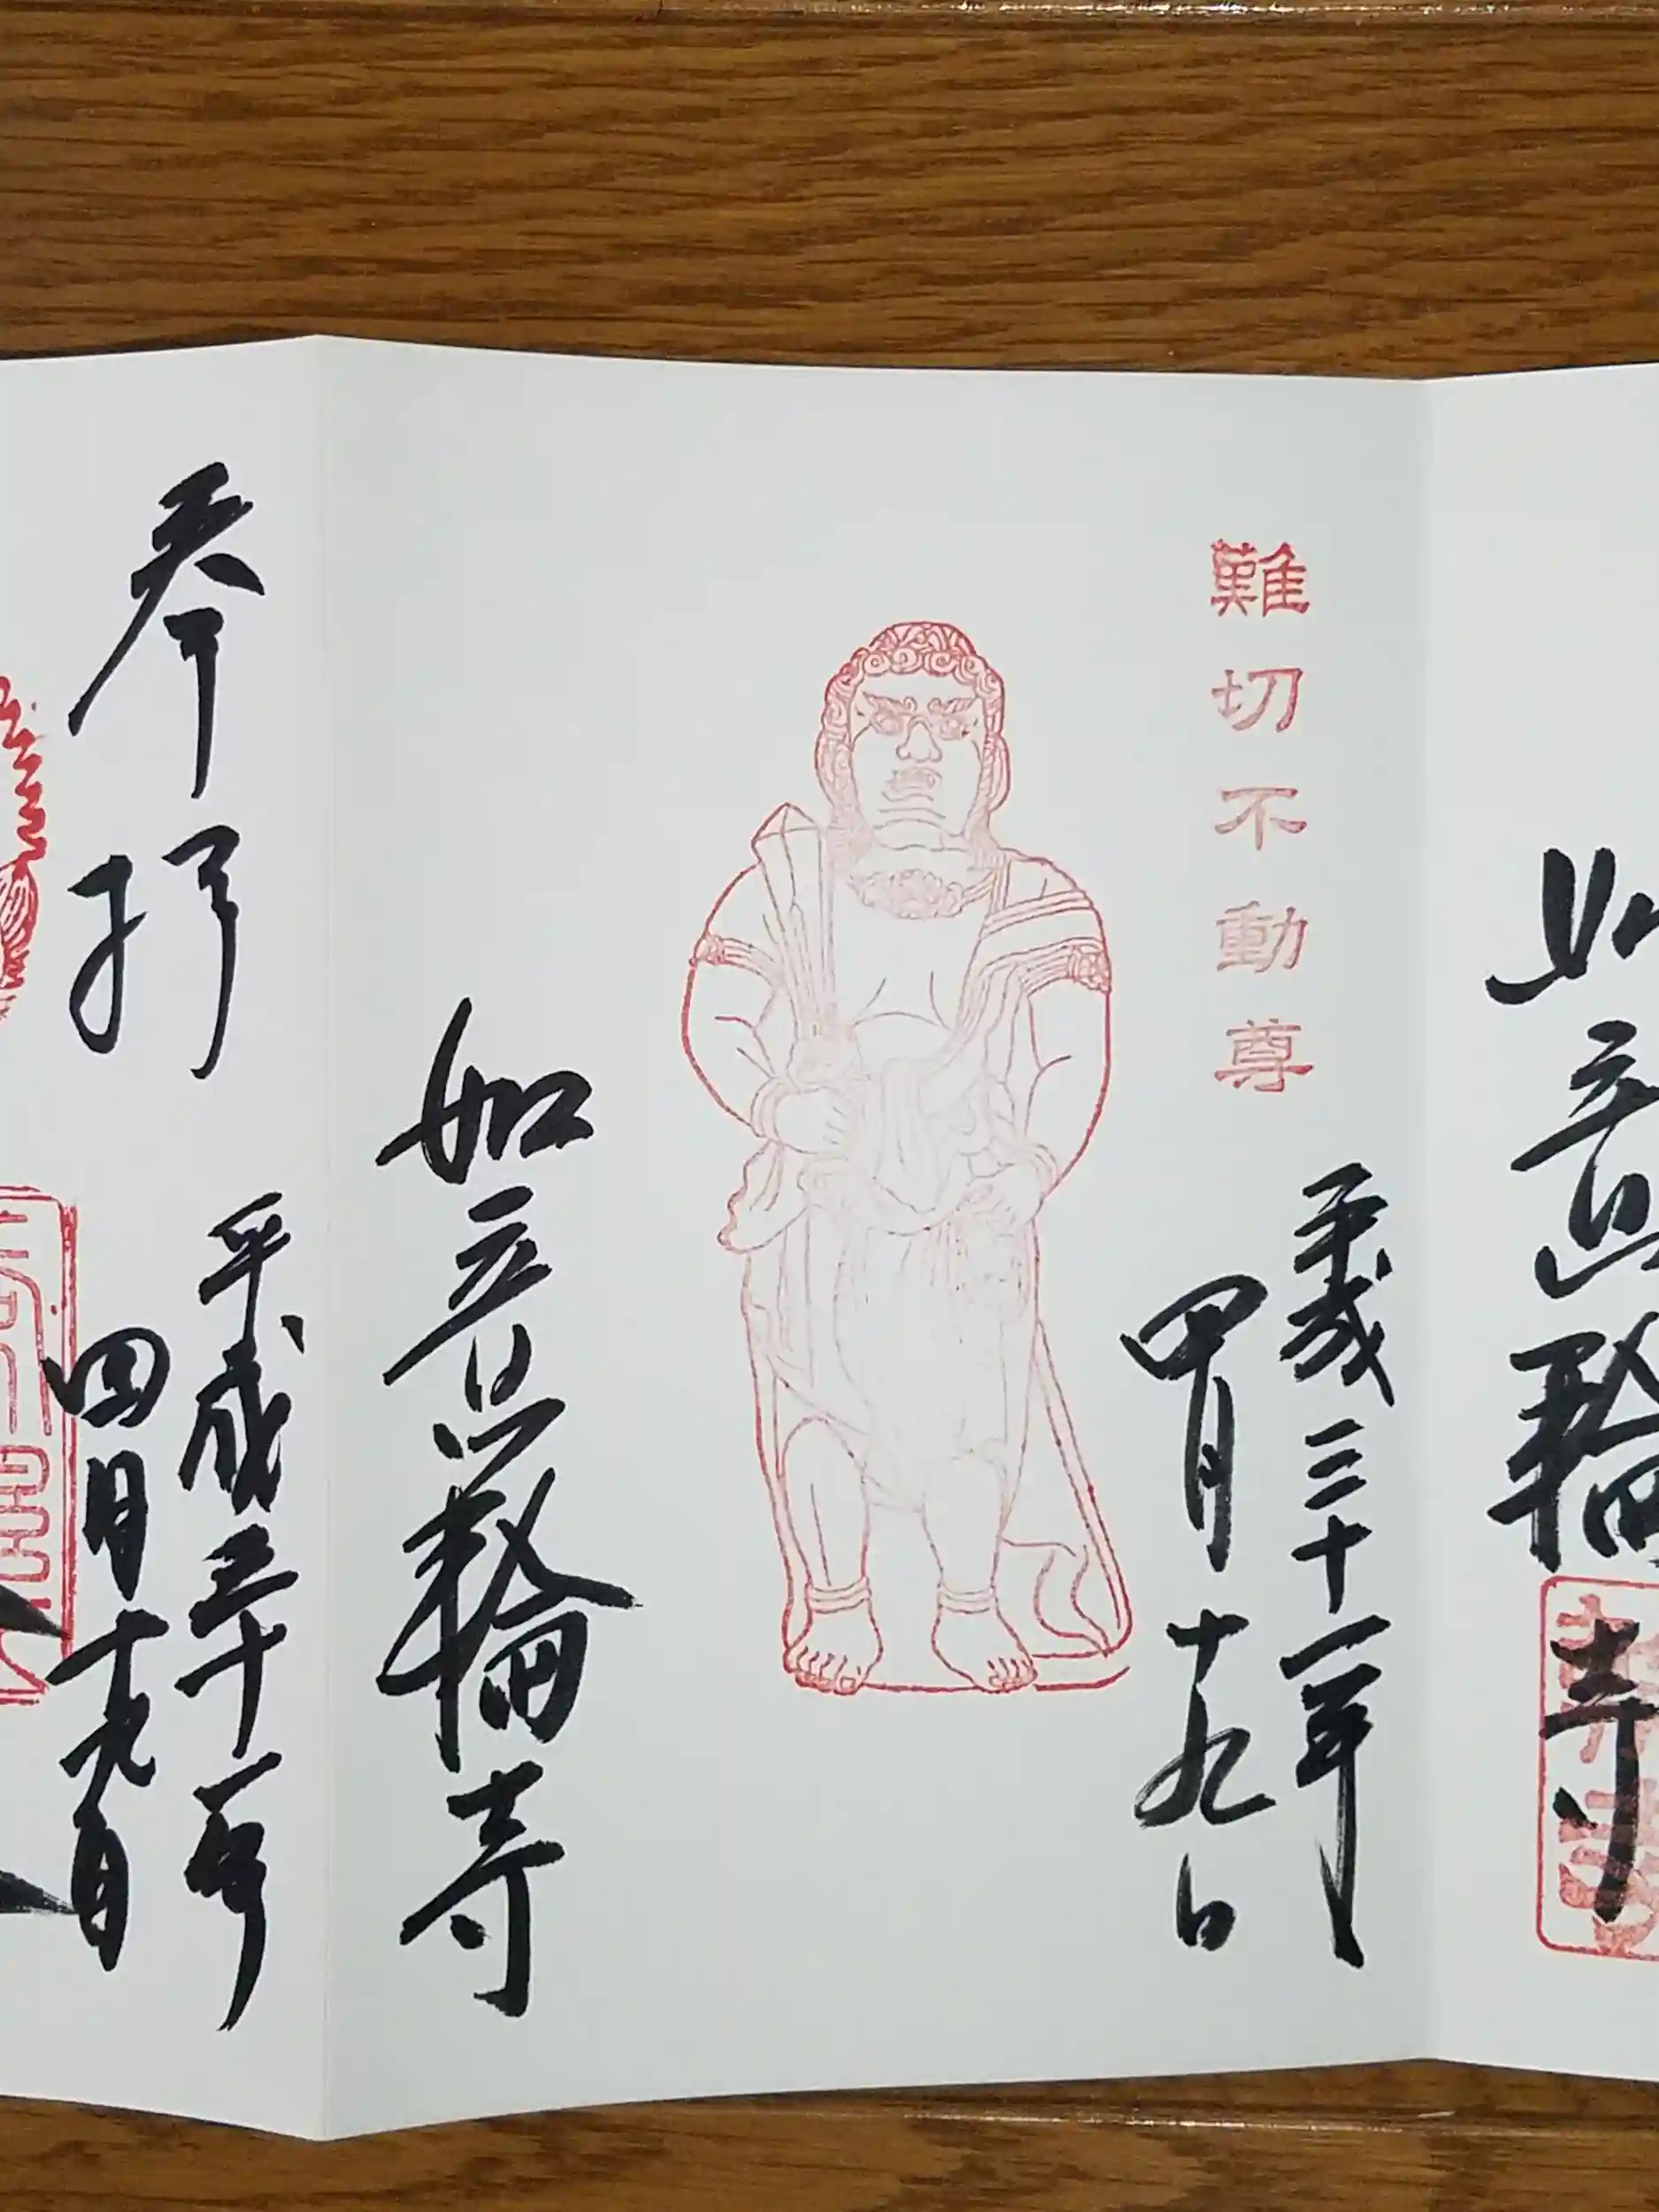 如意輪
寺
難切不動尊
平成三十一年
四月十九日
如意輪寺
奉拝
平成三十一年
四月十九日